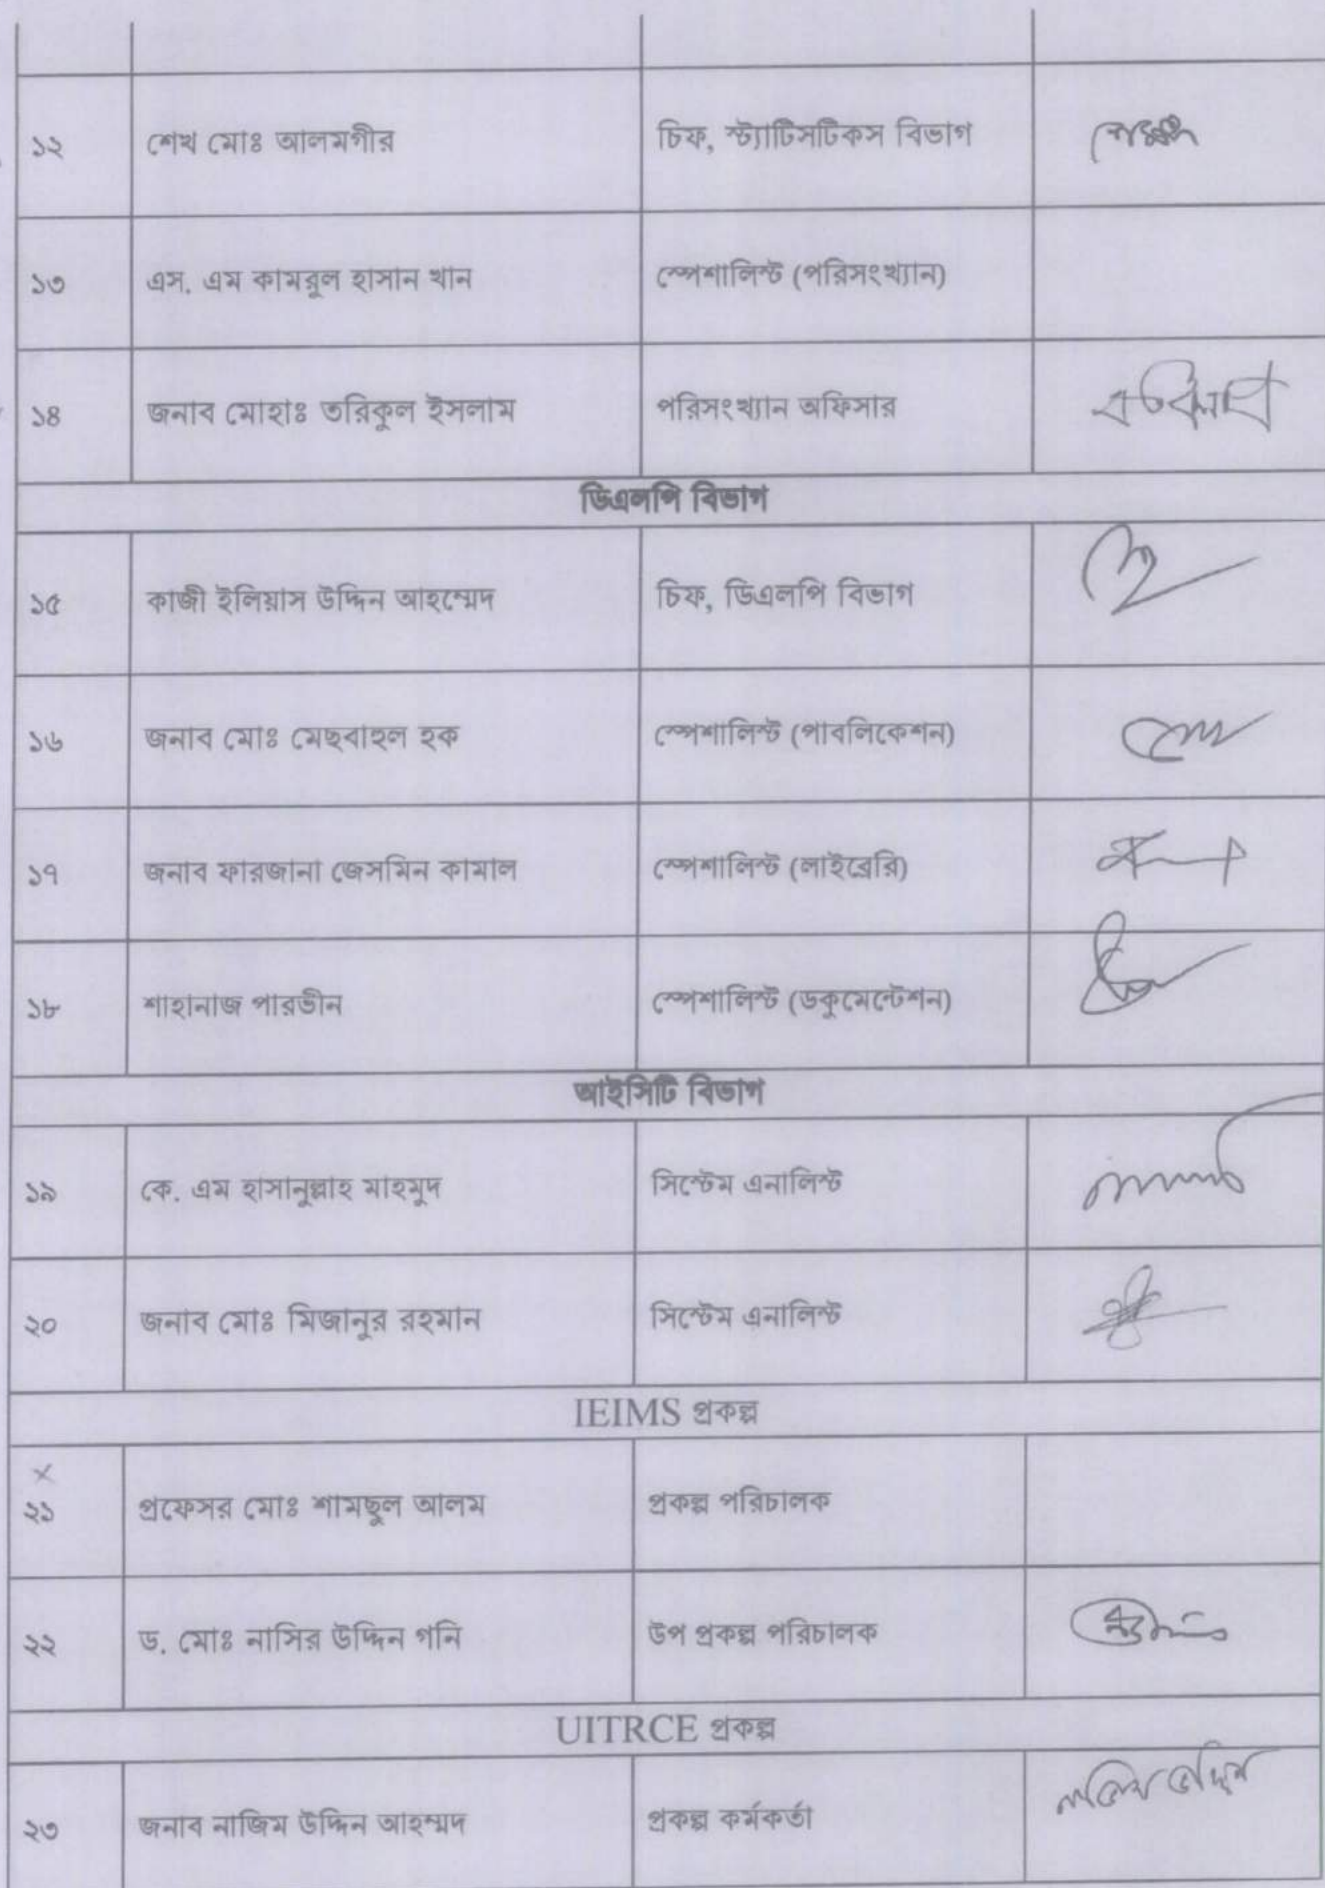 ১২ শেখ মোঃ আলমগীর চিফ, স্ট্যাটিসটিকস বিভাগ
১৩ এস. এম কামরুল হাসান খান স্পেশালিস্ট (পরিসংখ্যান)
১৪ জনাব মোহাঃ তরিকুল ইসলাম পরিসংখ্যান অফিসার
ডিএলপি বিভাগ
১৫ কাজী ইলিয়াস উদ্দিন আহম্মেদ চিফ, ডিএলপি বিভাগ
১৬ জনাব মোঃ মেছবাহুল হক স্পেশালিস্ট (পাবলিকেশন)
১৭ জনাব ফারজানা জেসমিন কামাল স্পেশালিস্ট (লাইব্রেরি)
১৮ শাহানাজ পারভীন স্পেশালিস্ট (ডকুমেন্টেশন)
আইসিটি বিভাগ
১৯ কে. এম হাসানুল্লাহ মাহমুদ সিস্টেম এনালিস্ট
২০ জনাব মোঃ মিজানুর রহমান সিস্টেম এনালিস্ট
IEIMS প্রকল্প
x
২১ প্রফেসর মোঃ শামছুল আলম প্রকল্প পরিচালক
২২ ড. মোঃ নাসির উদ্দিন গনি উপ প্রকল্প পরিচালক
UITRCE প্রকল্প
২৩ জনাব নাজিম উদ্দিন আহম্মদ প্রকল্প কর্মকর্তা